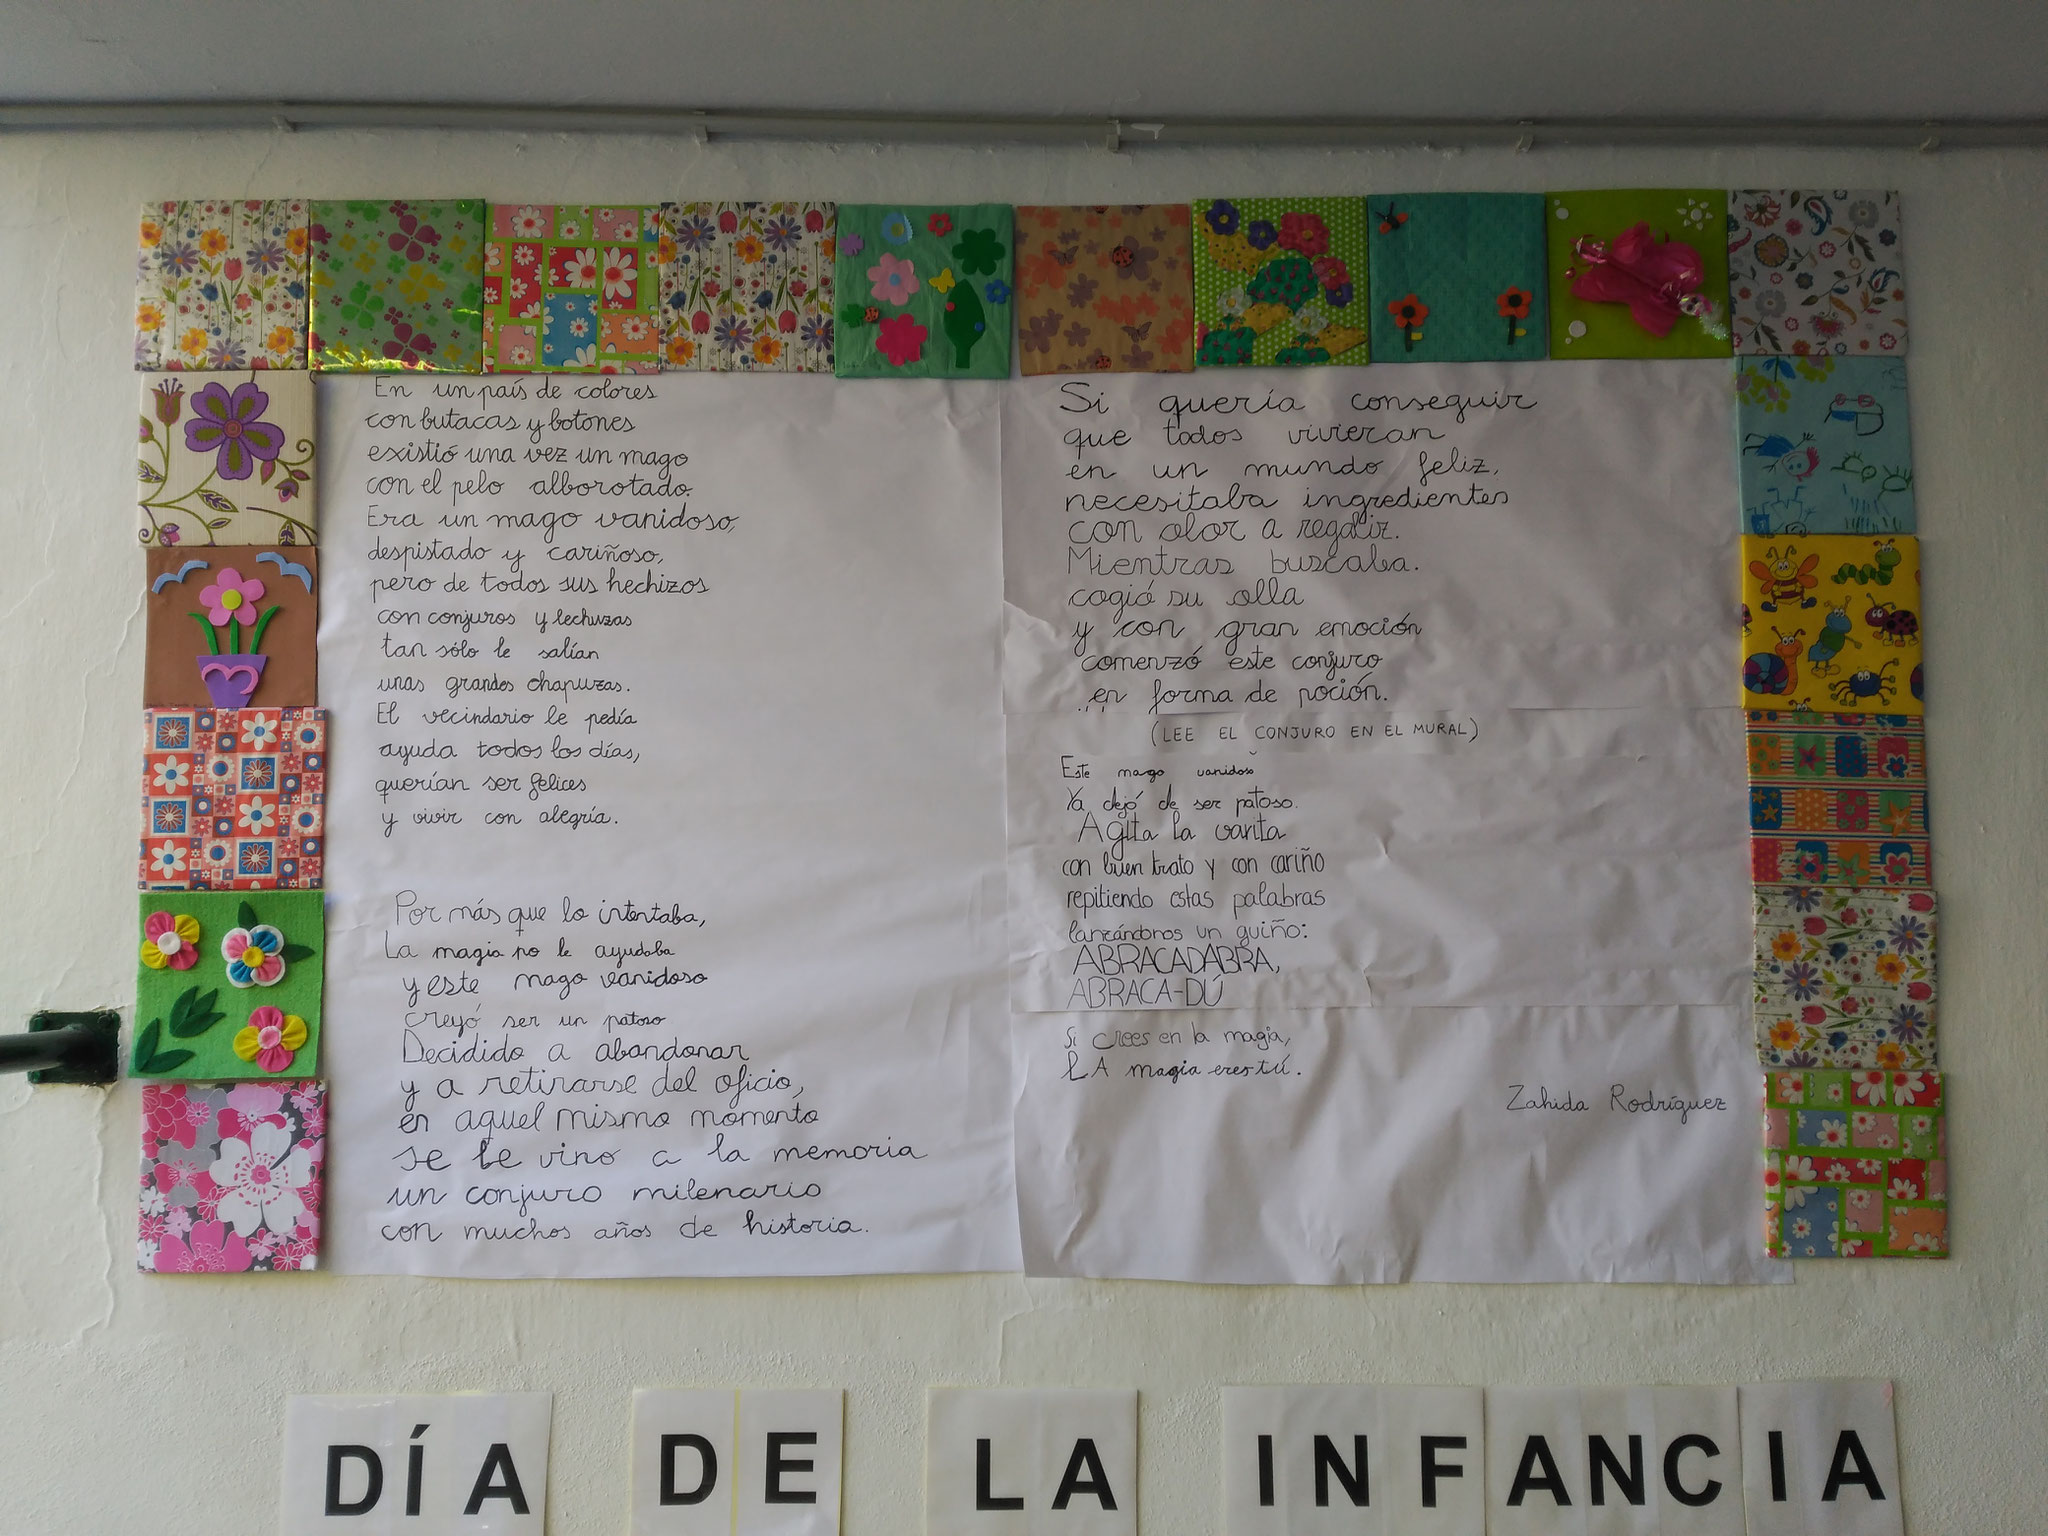 En un país de colores
con butacas y botones
existió una vez un mago
con el pelo alborotado.
Era un mago vanidoso,
despistado y cariñoso,
pero de todos sus hechizos
con conjuros y lechuzas
tan sólo le salían
unas grandes chapuzas.
El vecindario le pedía
ayuda todos los días,
querían ser felices
y vivir con alegría.
Por más que lo intentaba,
La magia no le ayudaba
y este mago vanidoso
creyó ser un patoso
Decidido a abandonar
y a retirarse del oficio,
en aquel mismo momento
se le vino a la memoria
un conjuro milenario
con muchos años de historia.
Si quería conseguir
que todos vivieran
en un mundo feliz,
necesitaba ingredientes
con olor a regaliz.
Mientras buscaba.
cogió su olla
y con gran emoción
comenzó este conjuro
en forma de poción.
(LEE EL CONJURO EN EL MURAL)
Este mago vanidoso
Ya dejó de ser patoso.
Agita la varita
con buen trato y con cariño
repitiendo estas palabras
lanzándonos un guiño:
ABRACADABRA,
ABRACA-DÚ
Si crees en la magia,
LA magia eres tú.
Zahida Rodríguez
DÍA DE LA INFANCIA